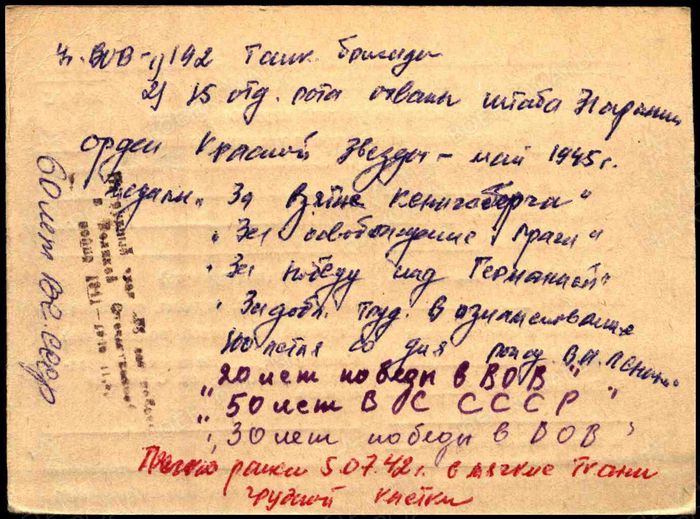 Уч. ВОВ - 1) 192 танк. бригады
2) 15 отд. рота охраны штаба Армии
орден Красной Звезды - май 1945 г.
медали „За взятие Кенигсберга"
„За освобождение Праги"
„За победу над Германией"
„За добл. труд. в ознаменование
100 летия со дня рожд. В.И. Ленина"
„20 лет победы в ВОВ"
„50 лет ВС СССР"
„30 лет победы в ВОВ"
Легко ранен 5.07.42 г. в мягкие ткани
грудной клетки
60 лет ВС СССР
Нагрудный знак
в Великой Отечественной
войне 1941-1945 г.г.